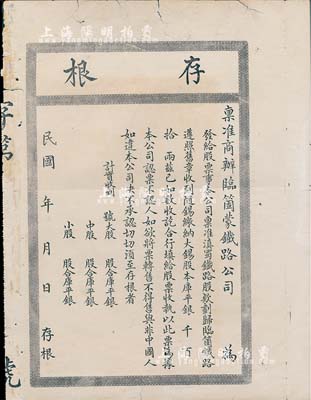 上海陽明拍賣
存根
稟准商辦臨箇蒙鐵路公司 為
發給股票事本公司票准滇蜀鐵路股款劃歸臨箇鐵路
遵照舊章收到隨錫繳納大錫股本庫平銀 千 百
拾 兩茲已如數收訖合行填給股票收執以此票為據
本公司認票不認人如欲將票轉售不得售與非中國人
如違本公司決不承認切切須至存根者
計實收到 號大股 股合庫平銀
中股 股合庫平銀
小股 股合庫平銀
民國 年 月 日 存根
字第
號